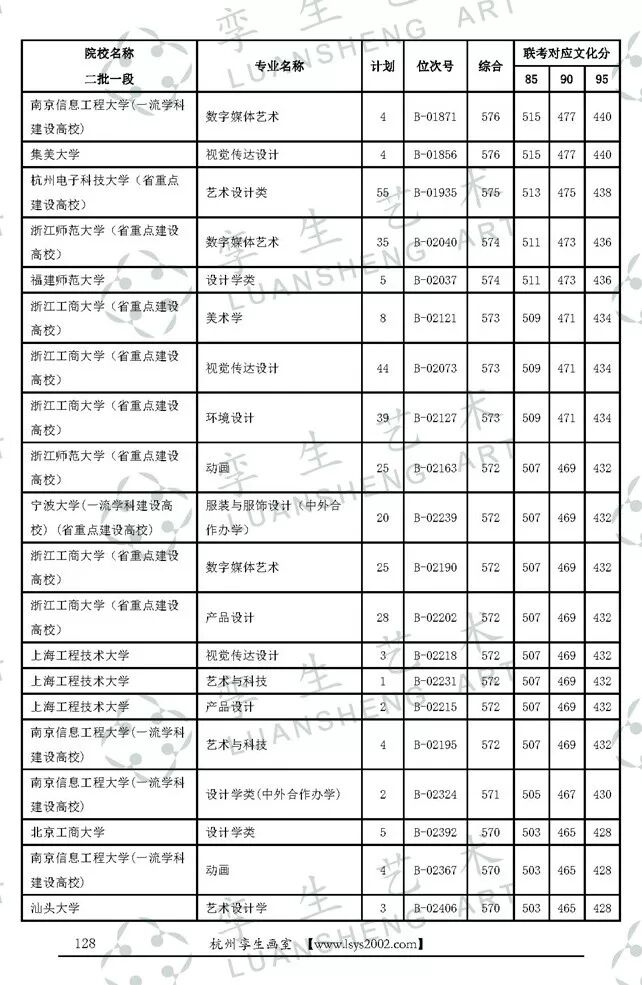 孪生艺术
LUANSHENG ART
院校名称 专业名称 计划 位次号 综合 联考对应文化分
二批一段 85 90 95
南京信息工程大学(一流学科
建设高校) 数字媒体艺术 4 B-01871 576 515 477 440
集美大学 视觉传达设计 4 B-01856 576 515 477 440
杭州电子科技大学（省重点
建设高校） 艺术设计类 55 B-01935 575 513 475 438
浙江师范大学（省重点建设
高校） 数字媒体艺术 35 B-02040 574 511 473 436
福建师范大学 设计学类 5 B-02037 574 511 473 436
浙江工商大学（省重点建设
高校） 美术学 8 B-02121 573 509 471 434
浙江工商大学（省重点建设
高校） 视觉传达设计 44 B-02073 573 509 471 434
浙江工商大学（省重点建设
高校） 环境设计 39 B-02127 573 509 471 434
浙江师范大学（省重点建设
高校） 动画 25 B-02163 572 507 469 432
宁波大学(一流学科建设高 服装与服饰设计（中外合
校) (省重点建设高校) 作办学） 20 B-02239 572 507 469 432
浙江工商大学（省重点建设
高校） 数字媒体艺术 25 B-02190 572 507 469 432
浙江工商大学（省重点建设
高校） 产品设计 28 B-02202 572 507 469 432
上海工程技术大学 视觉传达设计 3 B-02218 572 507 469 432
上海工程技术大学 艺术与科技 1 B-02231 572 507 469 432
上海工程技术大学 产品设计 2 B-02215 572 507 469 432
南京信息工程大学(一流学科
建设高校) 艺术与科技 4 B-02195 572 507 469 432
南京信息工程大学(一流学科
建设高校) 设计学类(中外合作办学) 2 B-02324 571 505 467 430
北京工商大学 设计学类 5 B-02392 570 503 465 428
南京信息工程大学(一流学科
建设高校) 动画 4 B-02367 570 503 465 428
汕头大学 艺术设计学 3 B-02406 570 503 465 428
128 杭州孪生画室 【www.lsys2002.com】